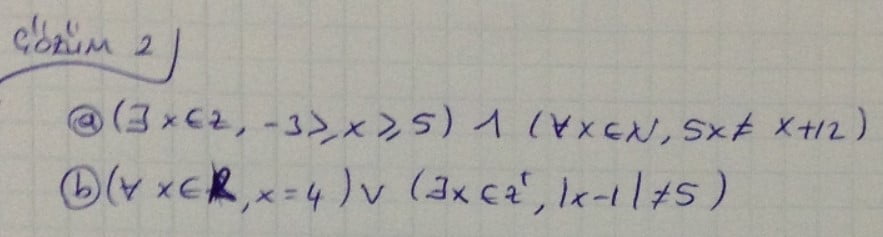 Çözüm 2
ⓐ (∃ x ∈ Z, -3 ≥ x ≥ 5) ∧ (∀x ∈ N, 5x ≠ x+12)
ⓑ (∀ x ∈ R, x = 4) ∨ (∃x ∈ Z⁺, |x-1| ≠ 5)